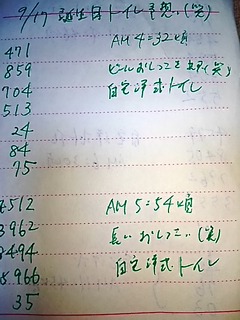 9/17 誕生日トイレ予想.(笑)
471 AM 4=32頃
859 ビールおしっこ(笑)
704 自宅洋式トイレ
513
24
84
75
7512 AM 5=54頃
3962 長いおしっこ.(笑)
3494 自宅洋式トイレ
8.966
35